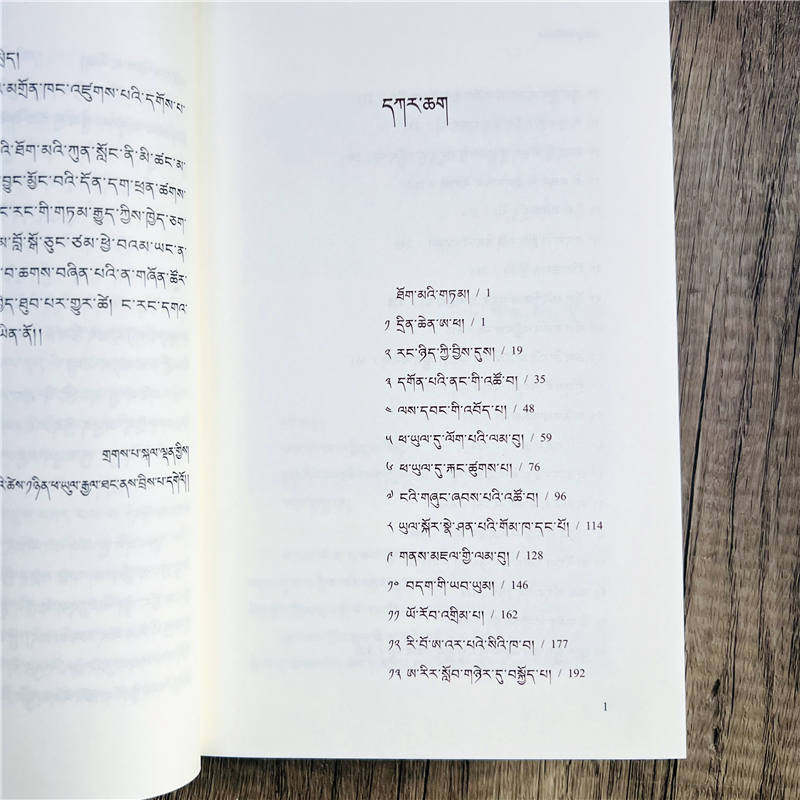 ཕྱེད།
མགྲོན་ཁང་འཛུགས་པའི་དགོས་པ་
འི་ཐོག་མའི་ཀུན་སློང་ནི་མི་ཚང་མ་
བྱུང་མྱོང་བའི་དོན་དག་ཕྲན་ཚེགས་
ང་རང་གི་གཏམ་རྒྱུད་ཀྱིས་ཁྱེད་ཅག་
མ་བློ་སྒོ་ཅུང་ཙམ་ཕྱེ་བའམ་ཡང་ན་
བ་ཆགས་བཞིན་པའི་ན་གཞོན་ཚོར་
བྱེད་ཐུབ་པར་གྱུར་ཚེ། ང་རང་དགའ་
ཡིན་ནོ།།
གྲགས་པ་སྐལ་ལྡན་གྱིས།
འི་ཚེས་༡ཉིན་ཕ་ཡུལ་རྒྱལ་ཐང་ནས་བྲིས་པ་དགེའོ།།
དཀར་ཆག
ཐོག་མའི་གཏམ། / 1
༡ དྲིན་ཆེན་ཨ་ཕ། / 1
༢ རང་ཉིད་ཀྱི་བྱིས་དུས། / 19
༣ དགོན་པའི་ནང་གི་འཚོ་བ། / 35
༤ ལས་དབང་གི་འབོད་པ། / 48
༥ ཕ་ཡུལ་དུ་ལོག་པའི་ལམ་བུ། / 59
༦ ཕ་ཡུལ་དུ་རྐང་ཚུགས་པ། / 76
༧ ངའི་གཞུང་ཞབས་པའི་འཚོ་བ། / 96
༨ ཡུལ་སྐོར་སྣེ་ཤན་པའི་གོམ་ཁ་དང་པོ། / 114
༩ གནས་མཇལ་གྱི་ལམ་བུ། / 128
༡༠ བདག་གི་ཡབ་ཡུམ། / 146
༡༡ ཡོ་རོབ་འགྲིམ་པ། / 162
༡༢ རི་བོ་ཨ་འར་པའེ་སིའི་ཁ་བ། / 177
༡༣ ཨ་རིར་སློབ་གཉེར་དུ་བསྐྱོད་པ། / 192
1